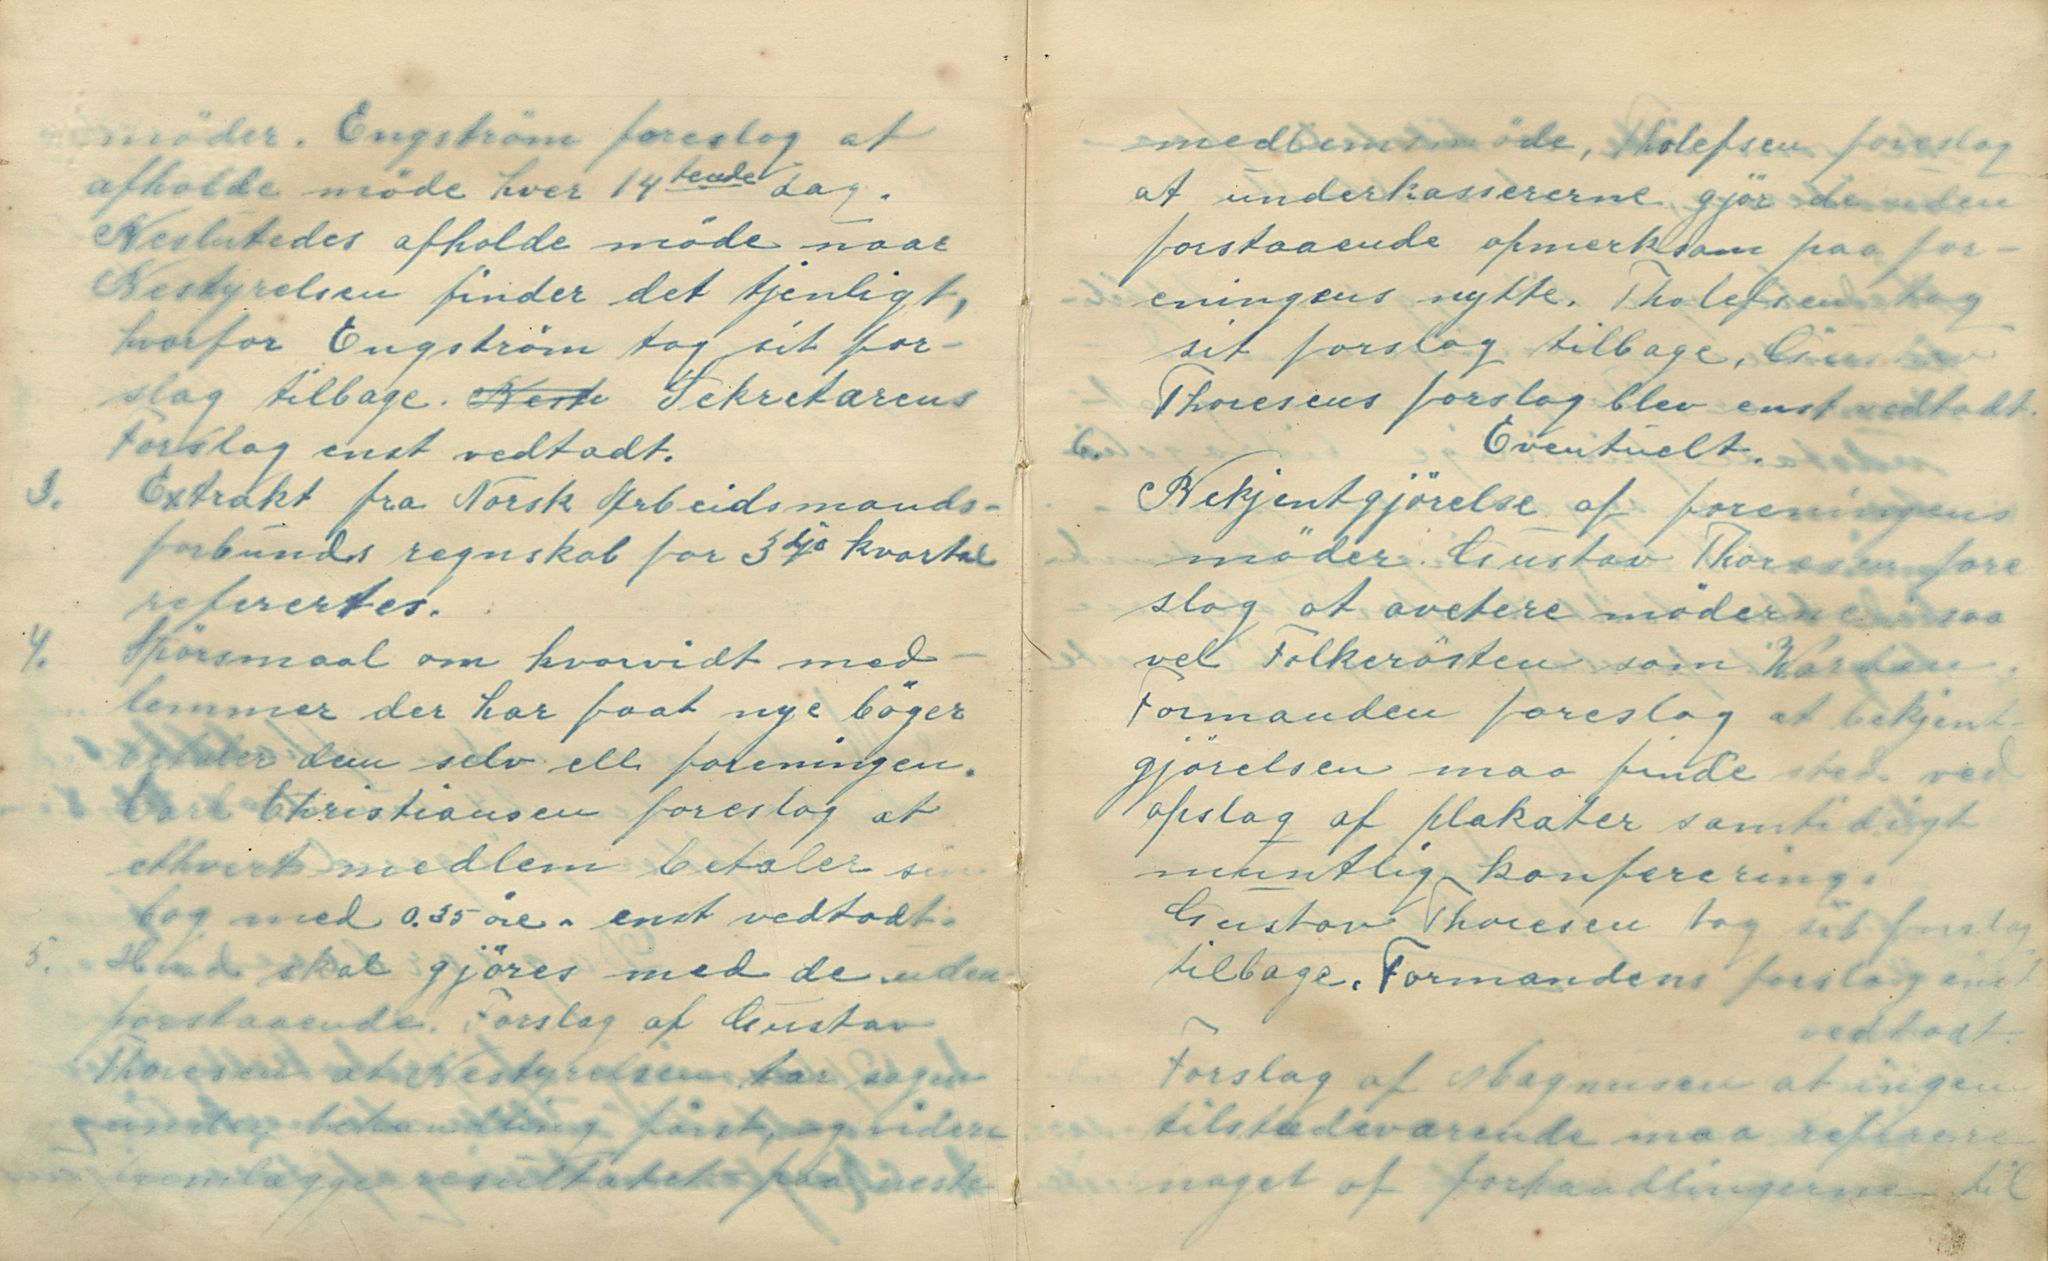 möder. Engström foreslog at
afholde möde hver 14 tende dag.
Beslutedes afholde möde naar
Bestyrelsen finder det tjenligt,
hvorfor Engström tog sit for-
slag tilbage. Best Sekretærens
Forslag enst vedtadt.
3. Extrakt fra Norsk Arbeidsmands-
forbunds regnskab for 3die kvartal
referertes.
4. Spörsmaal om hvorvidt med-
lemmer der har faat nye böger
betaler den selv ell. foreningen.
Carl Christiansen foreslog at
ethvert medlem betaler sin
bog med 0.35 öre. enst vedtadt.
5. Hvad skal gjöres med de uden
forstaaende. Forslag af Gustav
Thoresen at Bestyrelsen tar sagen
under behandling först, og videre
fremlægge resultatet paa neste
medlemsmöde, Tholefsen foreslog
at underkassererne gjör de uden
forstaaende opmerksom paa for-
eningens nytte. Tholefsen tog
sit forslag tilbage, Gustav
Thoresens forslag blev enst vedtadt.
6. Eventuelt.
Bekjentgjörelse af foreningens
möder. Gustav Thoresen fore
slog at avetere möderne i saa
vel Folkerösten som Varden.
Formanden foreslog at bekjent-
gjörelsen maa finde sted ved
opslag af plakater samtidigt
muntlig konferering.
Gustav Thoresen tog sit forslag
tilbage. Formandens forslag enst
vedtadt.
Forslag af Magnusen at ingen
tilstedeværende maa referere
noget af forhandlingerne til